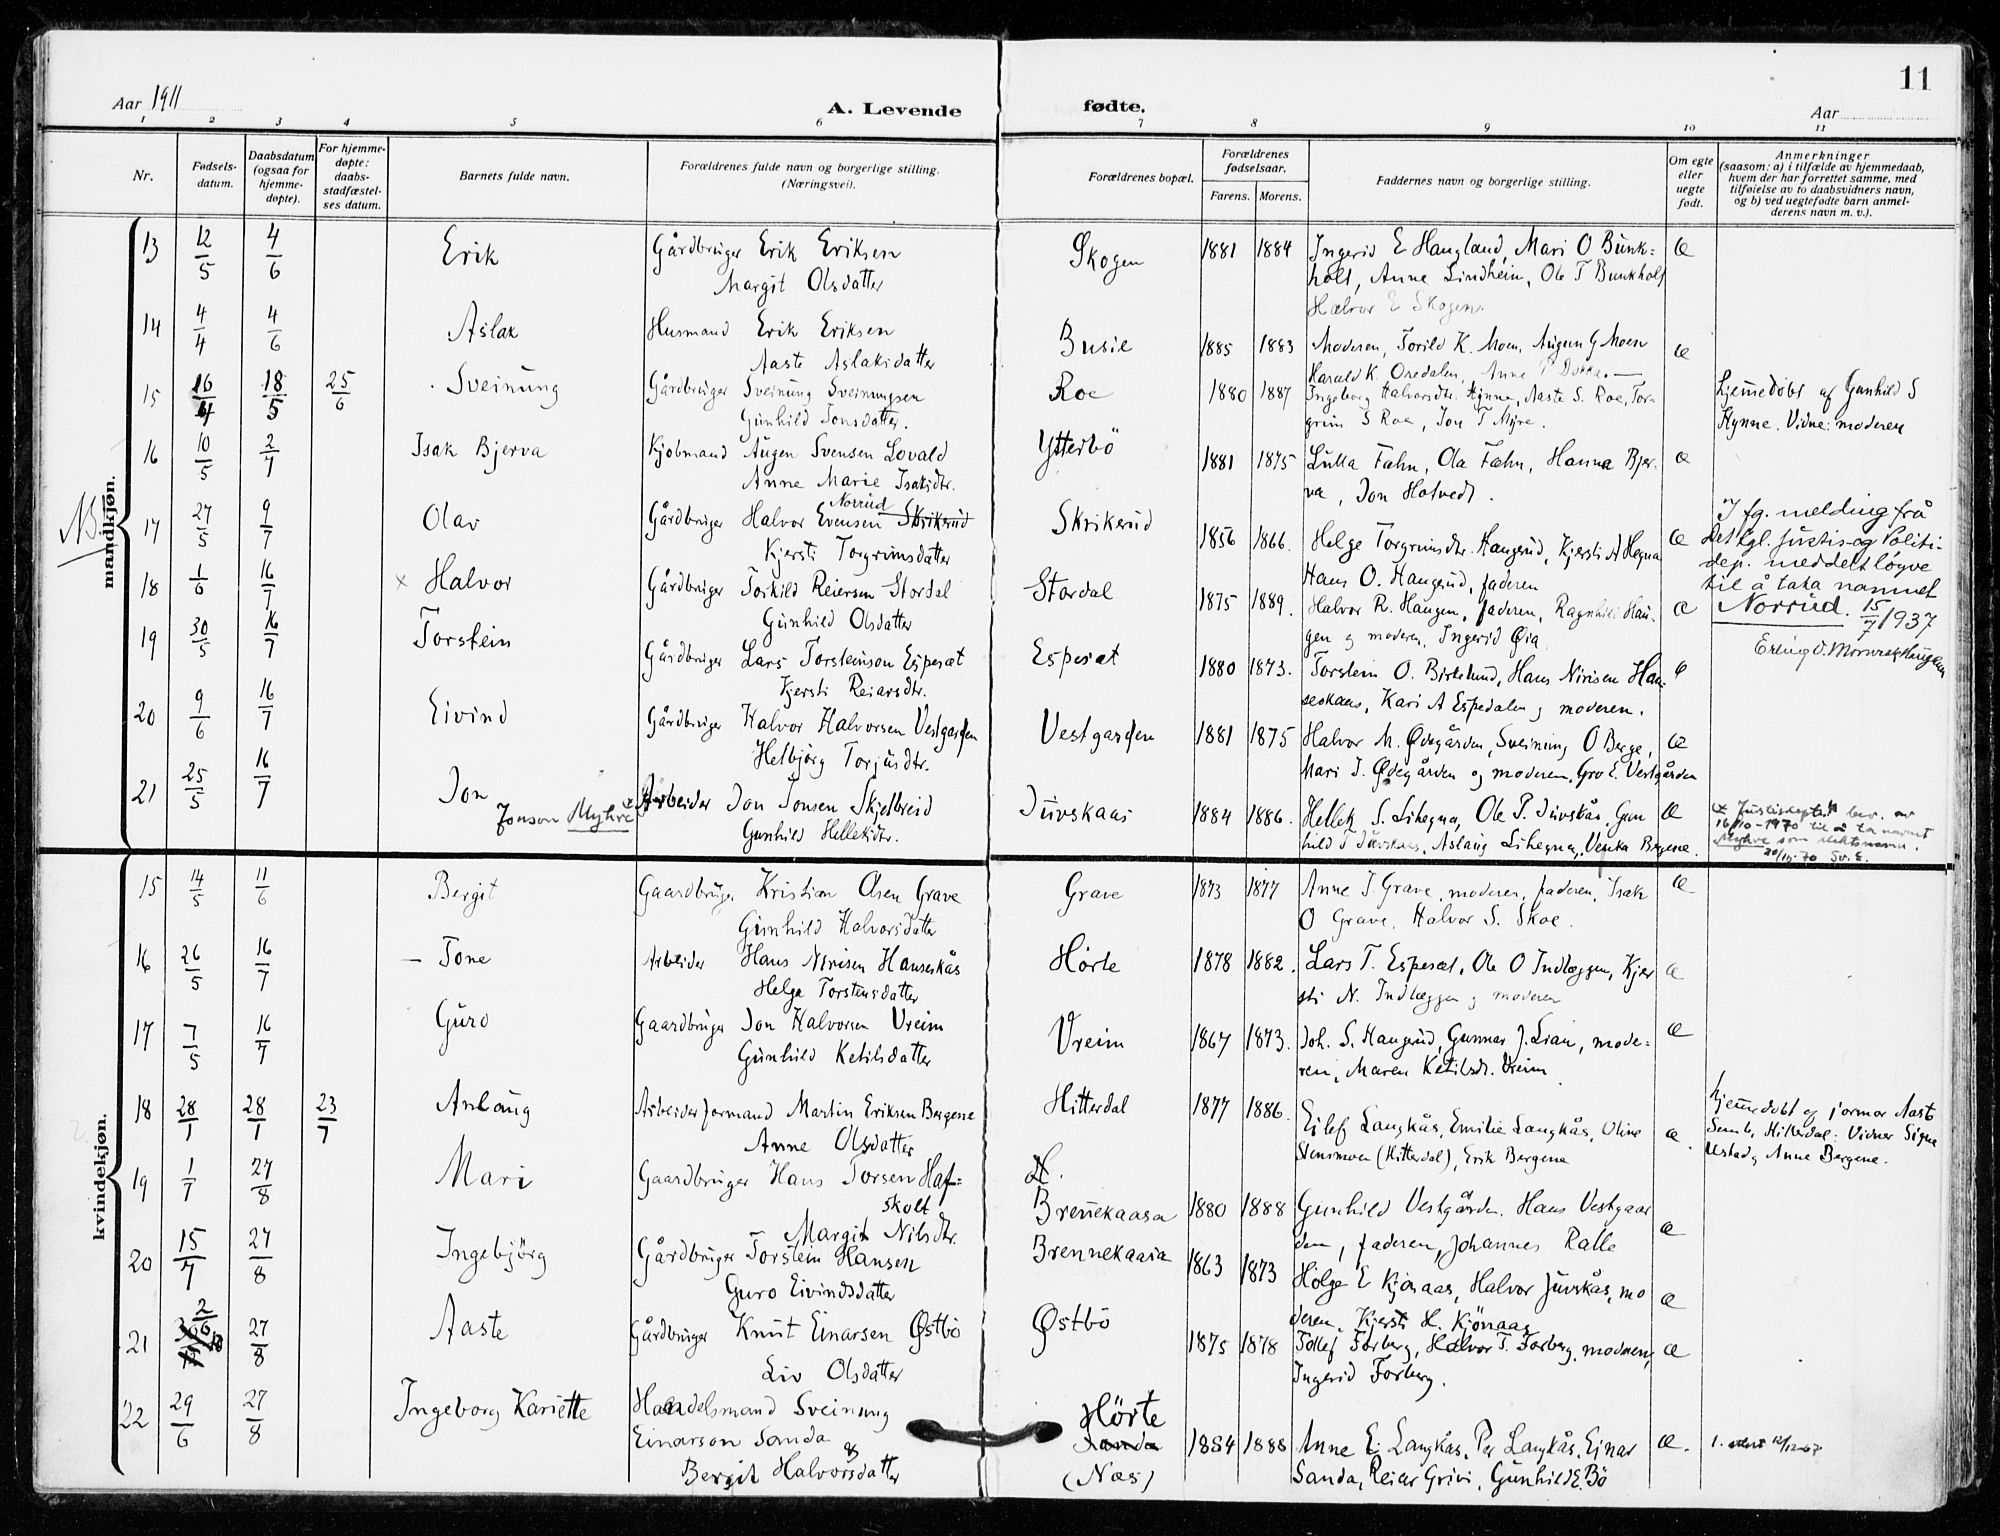 11
Aar 1911
A. Levende fødte.
Aar
1 2 3 4 5 6 7 8 9 10 11
Nr.
Fødsels-
datum.
Daabsdatum
(ogsaa for
hjemme-
døpte).
For hjemme-
døpte:
daabs-
stadfæstel-
ses datum.
Barnets fulde navn.
Forældrenes fulde navn og borgerlige stilling.
(Næringsvei).
Forældrenes bopæl.
Forældrenes
fødselsaar.
Farens. Morens.
Faddernes navn og borgerlige stilling.
Om egte
eller
uegte
født.
Anmerkninger
(saasom: a) i tilfælde av hjemmedaab,
hvem der har forrettet samme, med
tilføielse av to daabsvidners navn,
og b) ved uegtefødte barn anmel-
derens navn m. v.).
mandkjøn.
13 12/5 4/6 Erik Gårdbruger Erik Eriksen Skogen 1881 1884 Ingerid E Haugland, Mari O Bunk= Æ
Margit Olsdatter holt, Anne Lindheim, Ole T Bunkholt
Halvor E Skogen.
14 4/4 4/6 Aslak Husmand Erik Eriksen Busie 1885 1883 Moderen, Torild K. Moen, Augun G Moen Æ
Aaste Aslaksdatter Harald K. Oredalen, Anne P Dokka.
15 16/4 18/5 25/6 Sveinung Gårdbruger Sveinung Sveinungsen Roe 1880 1887 Ingeborg Halvorsdtr. Hynne, Aaste S. Roe, Tor- hjemedøbt af Gunhild S
Gunhild Jonsdatter. grim S Roe, Jon T Myre. Hynne. Vidne: moderen
16 10/5 2/7 Isak Bjerva Kjøbmand Augen Svensen Lovald Ytterbö 1881 1875 Lulla Fæhn, Ola Fæhn, Hanna Bjer- Æ
Anne Marie Isaksdtr. va, Jon Hotvedt.
NB!
17 27/5 9/7 Olav Gårdbruger Halvor Evensen Skrikerud Norrud Skrikerud 1856 1866. Helge Torgrimsdtr. Haugerud, Kjersti A Hegna Æ
Kjersti Torgrimsdatter Hans O. Haugerud, faderen
I fg. melding frå
Det kgl. justis- og Politi-
dep. meddelt løyve
til å taka namnet
Norrud. 15/7 1937
18 1/6 16/7 × Halvor Gårdbruger Torkild Reiersen Stordal Stordal 1875 1889. Halvor R. Haugen, faderen, Ragnhild Hau- Æ
Gunhild Olsdatter gen og moderen, Ingerid Øia
19 30/5 16/7 Torstein Gårdbruger Lars Torsteinson Espesæt Espesæt 1880 1873. Torstein O. Birkelund, Hans Nirisen Han-
Kjersti Reiarsdtr. seskaas, Kari A Espedalen og moderen.
20 9/6 16/7 Eivind Gårdbruger Halvor Halvorsen Vestgarden Vestgarden 1881 1875 Halvor M. Ødegården, Sveinung O Berge, Æ
Helbjørg Torjusdtr. Mari J. Ødegården og moderen, Gro E. Vestgården
21 25/5 16/7 Jon Arbeider Jon Jonsen Skjelbreid Juvskaas 1884 1886. Hellek S. Lihegna, Ole P. Juvskås, Gun Æ
Jonson Myhre Gunhild Hellekdtr. hild T Juvskaas, Aslaug Lihegna, Venka Bergene.
Justisdepte.s bev. av
16/10-1970 til å ta navnet
Myhre som slektsnavn.
20/10-70 Sv. E.
kvindekjøn.
15 14/5 11/6 Bergit Gaardbruger Kristian Olsen Grave Grave 1873 1877 Anne J. Grave, moderen, faderen, Isak Æ
Gunhild Halvorsdatter O Grave, Halvor S. Skoe.
16 26/5 16/7 — Tone Arbeider Hans Nirisen Hanseskås Hörte 1878 1882. Lars T. Espesæt, Ole O Indlæggen, Kjer Æ
Helge Torsteinsdatter sti N. Indlæggen og moderen
17 7/5 16/7 Guro Gaardbruger Jon Halvorsen Vreim Vreim 1867 1873. Joh. S. Haugerud, Gunnar J. Lian, mode- Æ
Gunhild Ketilsdatter ren, Maren Ketilsdt. Vreim
18 28/1 28/1 23/7 Anlaug Arbeiderformand Martin Eriksen Bergene Hitterdal 1877 1886. Eilef Langkås, Emilie Langkås, Oline Æ.
Anne Olsdatter Stensmoen (Hitterdal), Erik Bergene
hjemmedøbt af jormor Aaste
Semb, Hitterdal: Vidner Signe
Ustad og Anne Bergene.
19 1/7 27/8 Mari Gaardbruger Hans Torsen Haf- Brenekaasa 1880 1888 Gunhild Vestgården. Hans Vestgaar Æ
skolt den, faderen, Johannes Kalle
Margit Nilsdtr.
20 15/7 27/8 Ingebjörg Gårdbruger Torstein Hansen Brennekaasa 1863 1873 Holge E Kjönaas, Halvor Juvskås, mo Æ
Guro Eivindsdatter deren, Kjersti H. Kjönaas
21 2/6 27/8 Aaste Gårdbruger Knut Einarsen Østbö Østbö 1875 1878 Tollef Forberg, Halvor T. Forberg, moderen, Æ
Liv Olsdatter Ingerid Forberg.
22 29/6 27/8 Ingeborg Kariette Handelsmand Sveinung Hörte
Einarson Sanda Sanda 1884 1888 Anne E. Langkås, Per Langkås, Einar Æ.
Bergit Halvorsdatter (Næs) Sanda, Reiar Grivi, Gunhild E. Bö